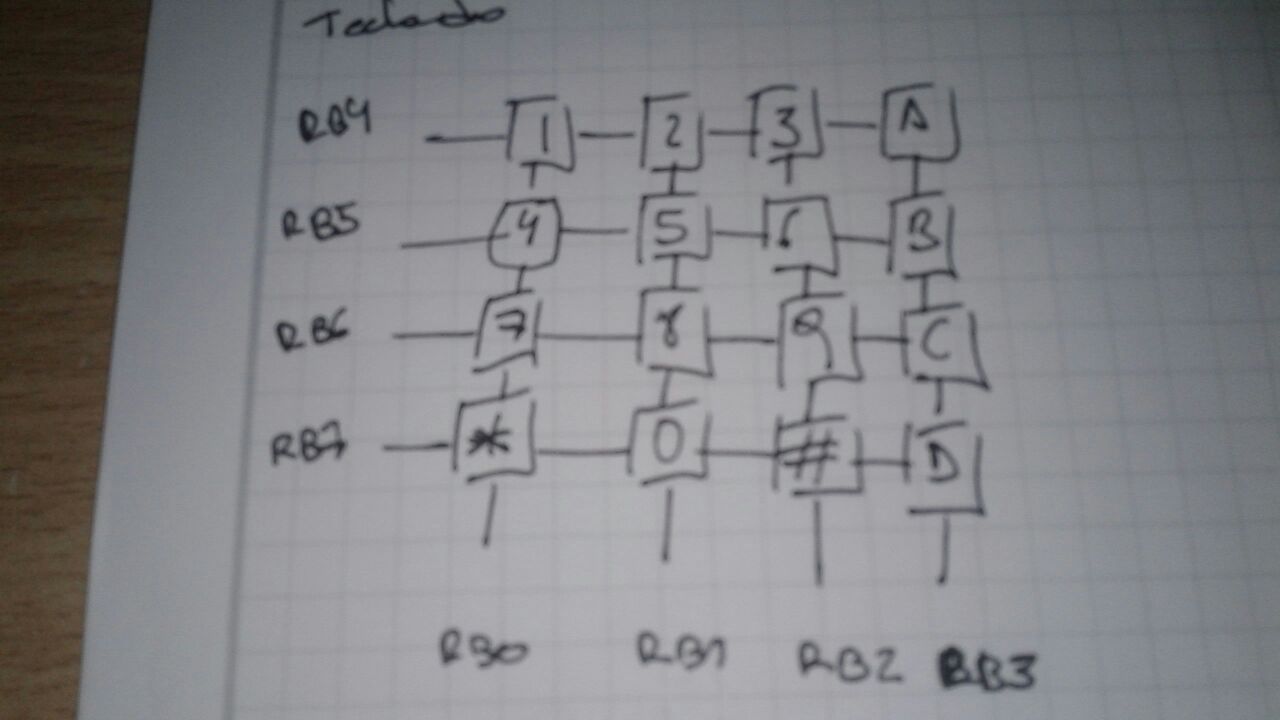 Teclado
RB4 1 2 3 A
RB5 4 5 6 B
RB6 7 8 9 C
RB7 * 0 # D
RB0 RB1 RB2 RB3